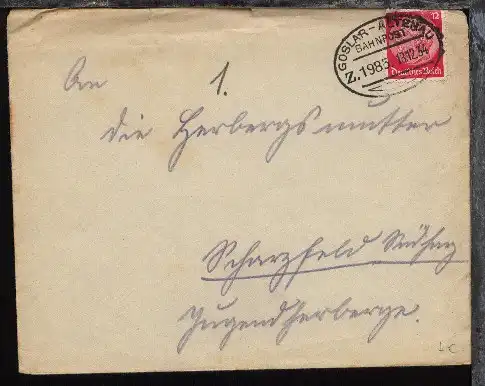 GOSLAR-ALTENAU
BAHNPOST
Z.1983 13.12.34
12
Deutsches Reich
An 1.
die Herbergsmutter
Scharzfeld Südharz
Jugendherberge.